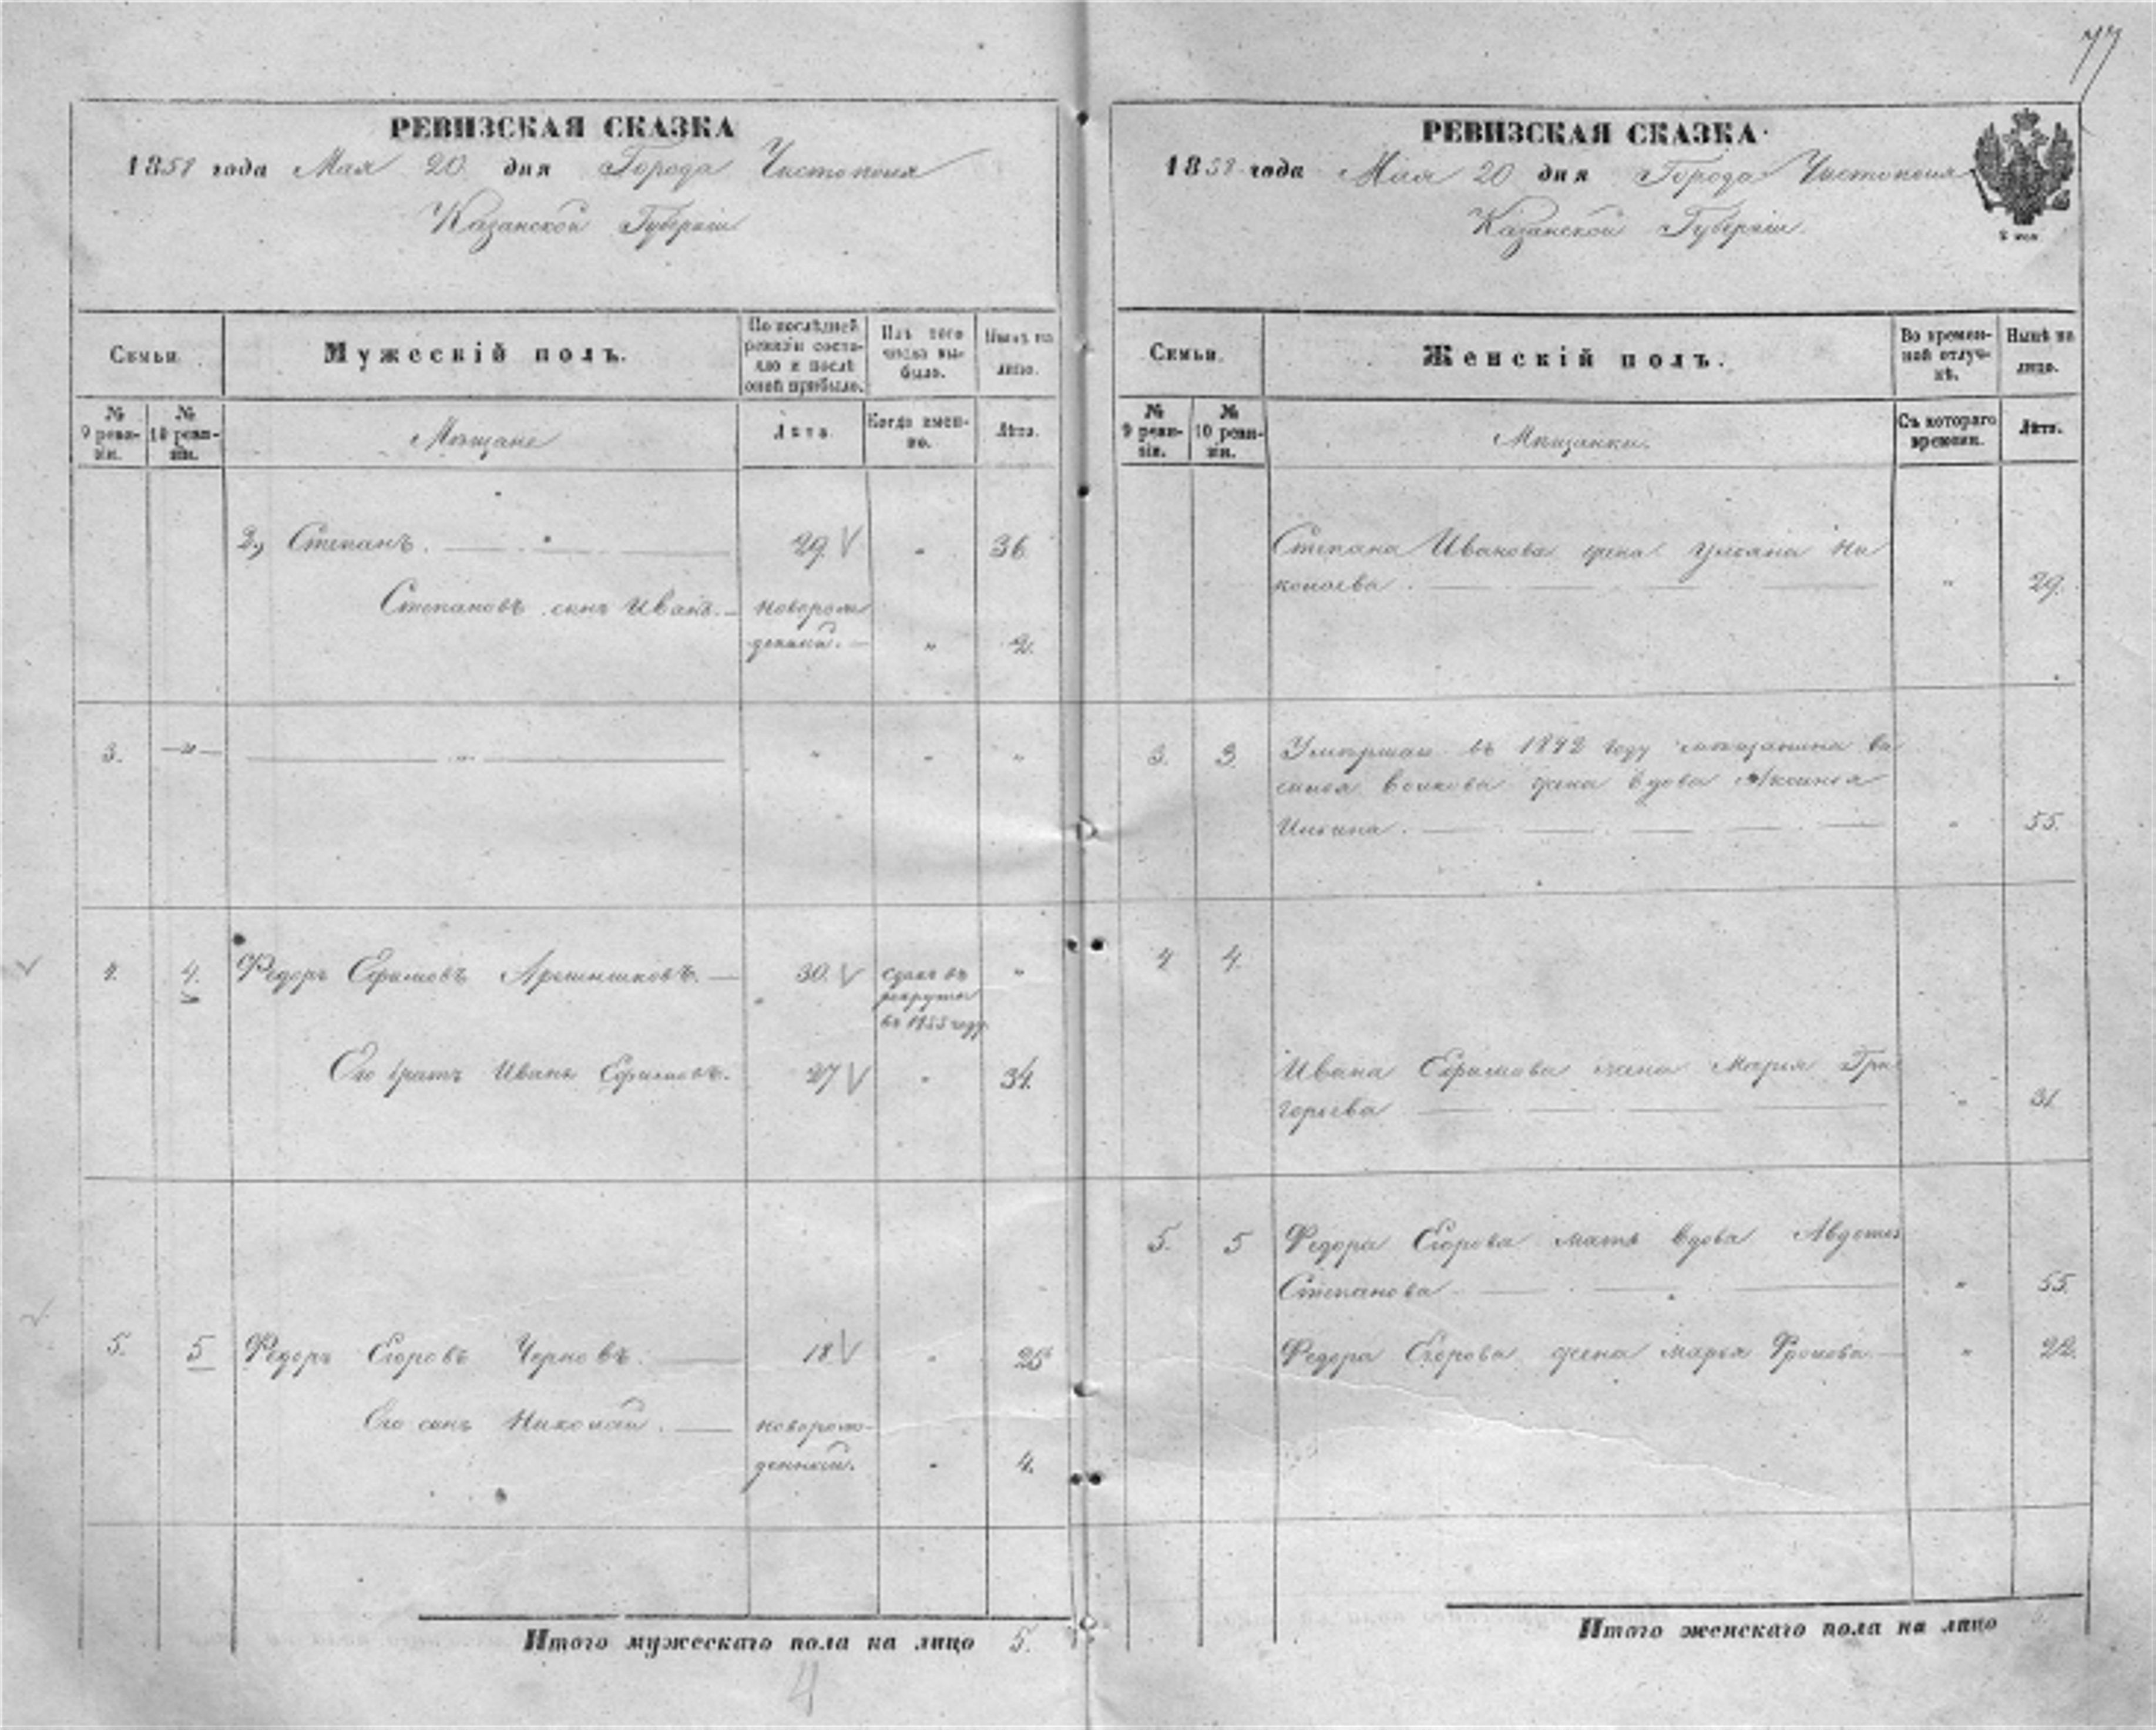 77
РЕВИЗСКАЯ СКАЗКА
1858 года Мая 20 дня Города Чистополя
Казанской Губерніи
Семьи.
Мужескій полъ.
По послѣдней ревизіи состояло и послѣ оной прибыло.
Изъ того числа выбыло.
Нынѣ на лицо.
№ 9 ревизіи.
№ 10 ревизіи.
Мѣщане
Лѣта.
Когда именно.
Лѣта.
2, Степанъ. 29. " 36
Степановъ сынъ Иванъ. новорож
денный. " 2.
3. " " " " "
4. 4. Федоръ Ефимовъ 30. сданъ въ "
рекруты
въ 1855 году
Его братъ Иванъ Ефимовъ. 27 " 34.
5. 5 Федоръ Егоровъ Черновъ. 18 " 25
Его сынъ Николай. новорож-
денный. " 4.
Итого мужескаго пола на лицо 5.
4
РЕВИЗСКАЯ СКАЗКА
1858 года Мая 20 дня Города Чистополя
Казанской Губерніи
Семьи.
Женскій полъ.
Во временной отлучкѣ.
Нынѣ на лицо.
№ 9 ревизіи.
№ 10 ревизіи.
Мѣщанки.
Съ котораго времени.
Лѣта.
Степана Иванова жена Ульяна Ни
колаева. " 29.
3. 3. Умершаго въ 1842 году мѣщанина Ва
силья Волкова жена вдова Аксинья
Ильина. " 55.
4 4.
Ивана Ефимова жена Марья Гри
горьева " 31
5. 5 Федора Егорова мать вдова Авдотья
Степанова " 55.
Федора Егорова жена Марья Фролова " 22.
Итого женскаго пола на лицо